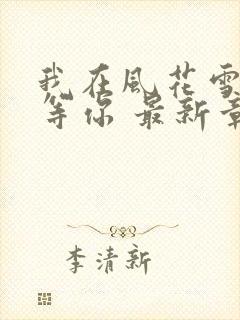 我在風花雪
等你 最新章
李清新